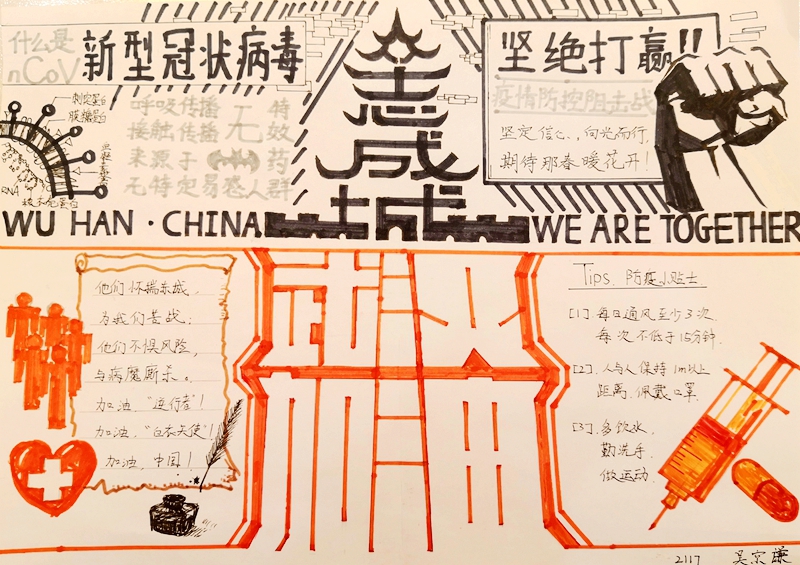 什么是
nCoV
新型冠状病毒
RNA
呼吸传播
接触传播
来源于
无特定易感人群
无
特
效
药
众
志
成
城
坚绝打赢!!
疫情防控阻击战
坚定信心、向光而行,
期待那春暖花开!
WU HAN · CHINA
WE ARE TOGETHER
他们怀揣
为我们
他们不惧风险,
与病魔厮杀。
加油,“逆行者”!
加油,“白衣天使”!
加油,中国!
Tips. 防疫小贴士
[1] 每日通风至少3次
每次不低于15分钟.
[2]. 人与人保持1m以上
距离.佩戴口罩
[3]. 多饮水.
勤洗手.
做运动.
2117 吴宗謙